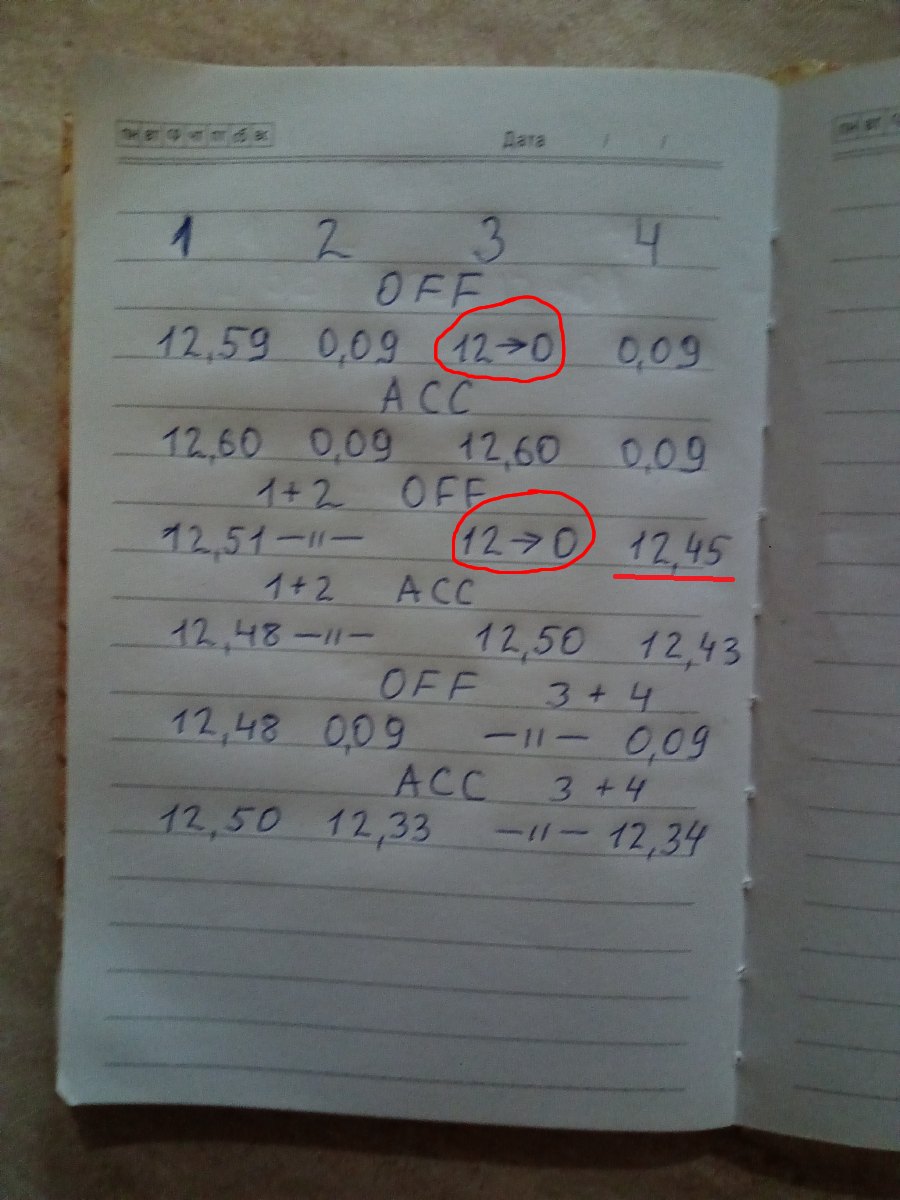 пн вт ср чт пт сб вс Дата / /
1 2 3 4
OFF
12,59 0,09 12→0 0,09
ACC
12,60 0,09 12,60 0,09
1+2 OFF
12,51 —11— 12→0 12,45
1+2 ACC
12,48 —11— 12,50 12,43
OFF 3+4
12,48 0,09 —11— 0,09
ACC 3+4
12,50 12,33 —11— 12,34